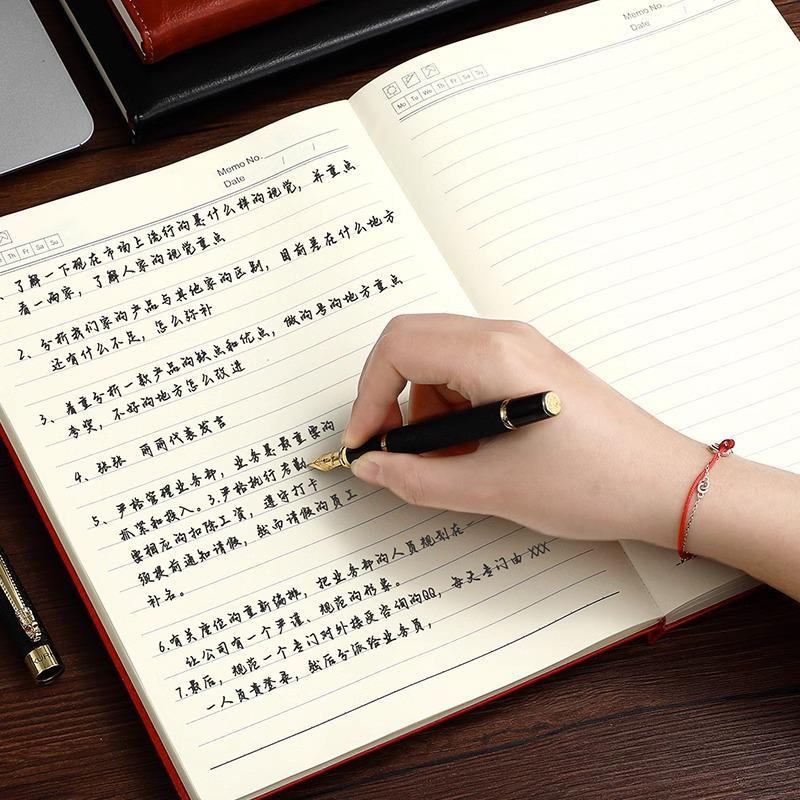 Memo No.
Date / /
Th Fr Sa Su
、了解一下现在市场上流行的是什么样的视觉，并重点
看一两家，了解人家的视觉重点
2、分析我们家的产品与其他家的区别，目前是在什么地方
还有什么不足，怎么弥补
3、着重分析一款产品的缺点和优点，做的号的地方重点
夸奖，不好的地方怎么改进
4、张张 丽丽代表发言
5、严格管理业务部，业务是最重要的
抓紧和投入。3.严格执行考勤
要相应的扣除工资，遵守打卡
须提前通知请假，然而请假的员工
补名。
6.有关座位的重新编排，把业务部的人员规划在一
让公司有一个严谨、规范的形象。
7.最后，规范一个专门对外接受咨询的QQ，每天专门由XXX
一人负责登录，然后分派给业务员，
Memo No.
Date / /
Mo Tu We Th Fr Sa Su